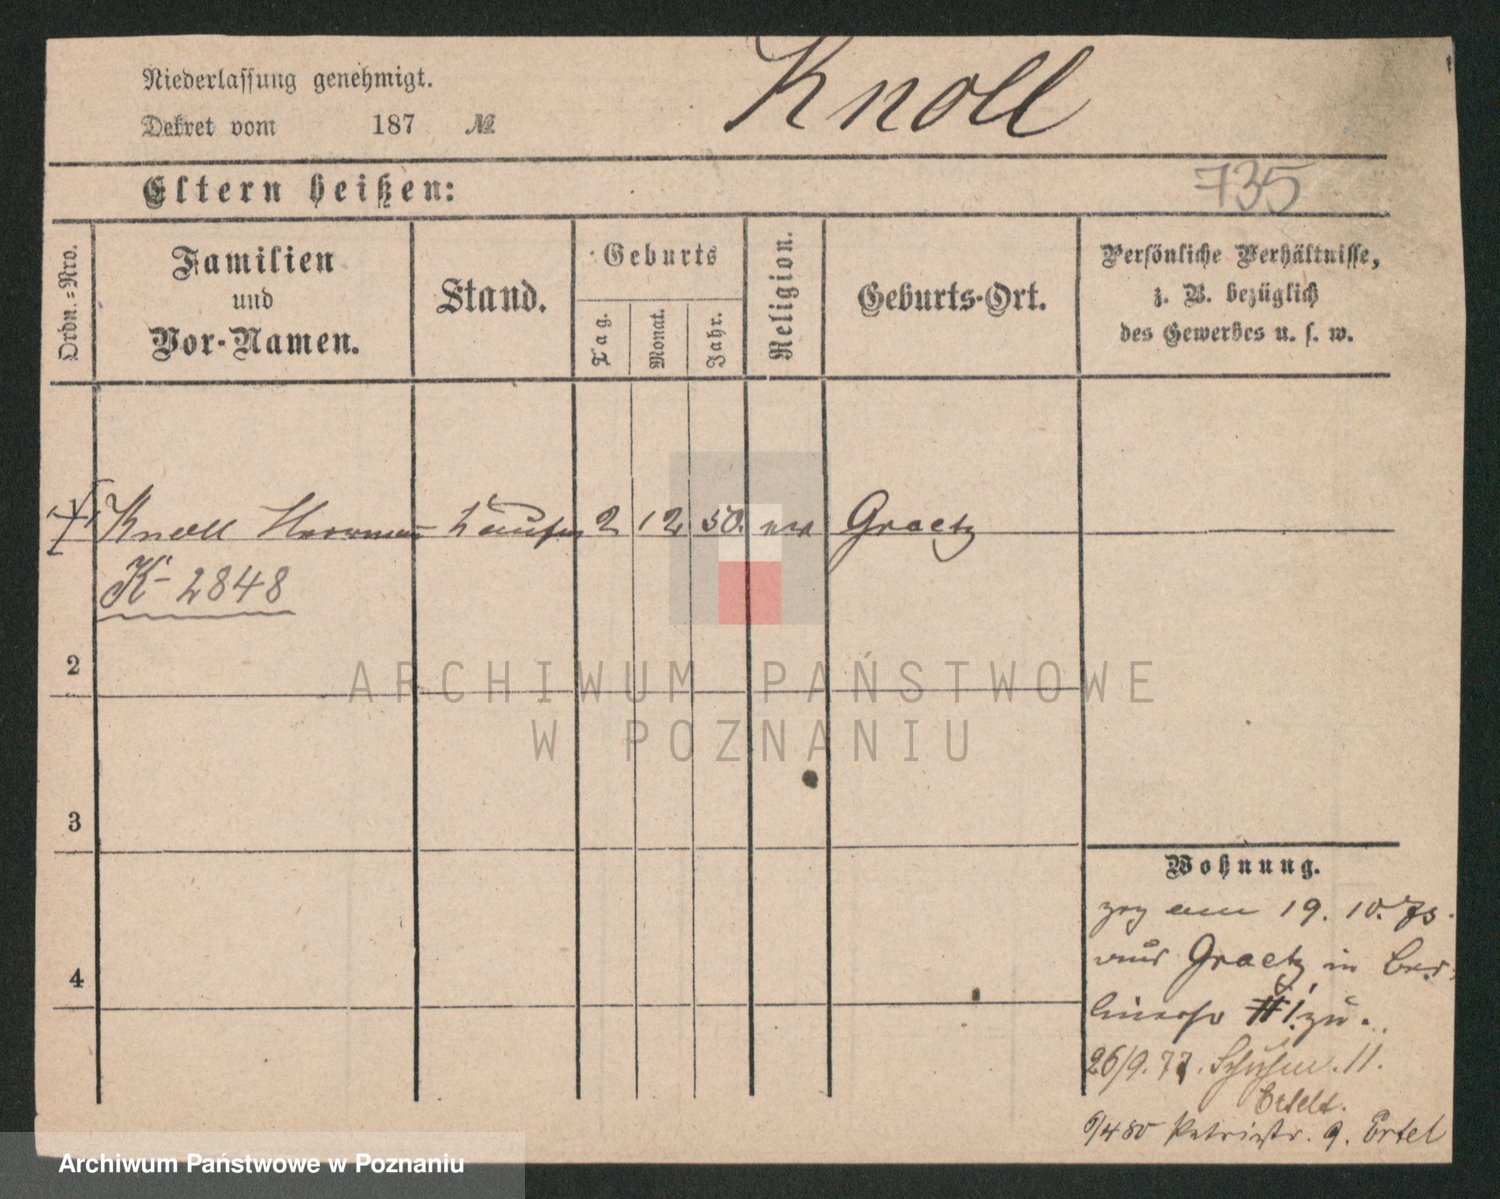 Niederlassung genehmigt.
Dekret vom 187 №
Knoll
735
Eltern heißen:
Ordn.=Nro.
Familien
und
Vor-Namen.
Stand.
Geburts
Tag.
Monat.
Jahr.
Religion.
Geburts-Ort.
Persönliche Verhältnisse,
z. B. bezüglich
des Gewerbes u. s. w.
1 Knoll Herrmann 2 12 50. Graetz
K-2848
2
3
4
Wohnung.
zog am 19. 10. 75.
aus Graetz in Ber-
linerstr 1. zu.
26/9. 77. Schuhm. 11.
Ertelt.
6/4 80 Patriestr. 9. Ertel
ARCHIWUM PAŃSTWOWE
W POZNANIU
Archiwum Państwowe w Poznaniu